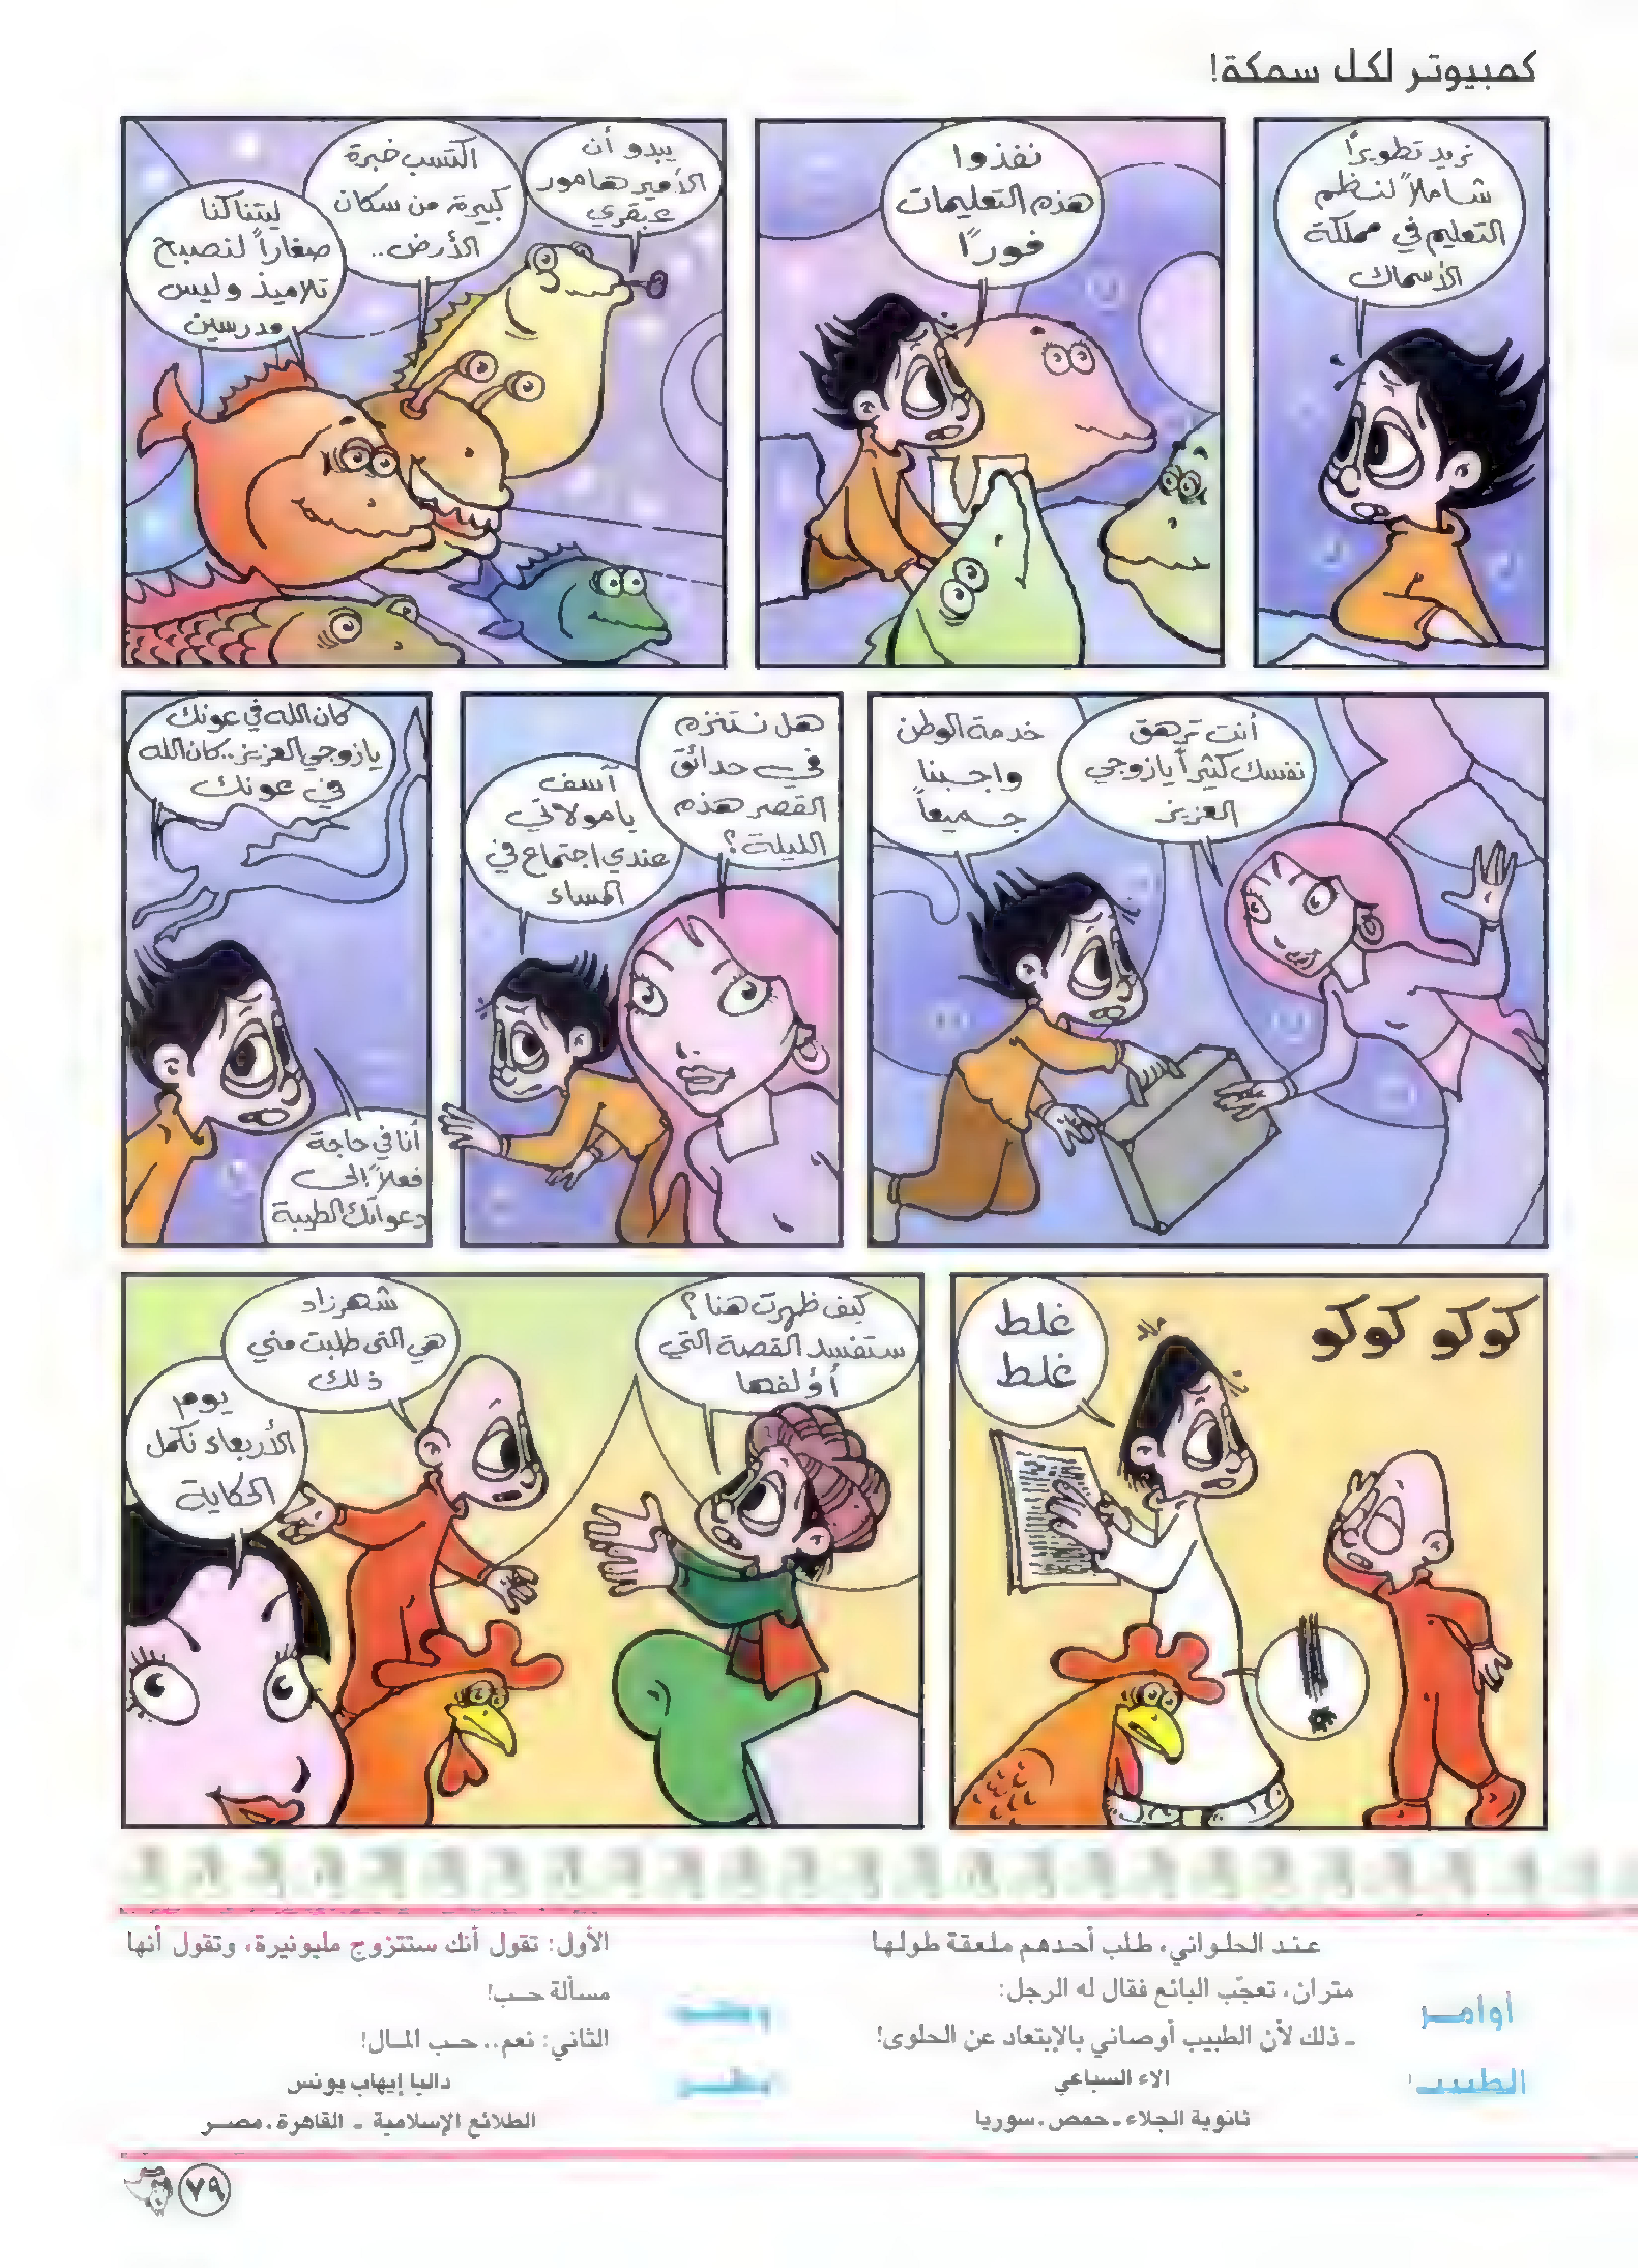 كمبيوتر لكل سمكة!
نريد تطويرًا
شاملاً لنظم
التعليم في مملكة
الأسماك
نفذوا
هذه التعليمات
فورًا
يبدو أن
الأمير هامور
عبقري
اكتسب خبرة
كبيرة من سكان
الأرض..
ليتنا كنا
صغاراً لنصبح
تلاميذ وليس
مدرسين
أنت ترهق
نفسك كثيراً يا زوجي
العزيز
خدمة الوطن
واجبنا
جميعاً
هل نتنزه
في حدائق
القصر هذه
الليلة؟
آسف
يا مولاتي
عندي اجتماع في
المساء
كان الله في عونك
يا زوجي العزيز.. كان الله
في عونك
أنا في حاجة
فعلاً إلى
دعواتك الطيبة
كوكو كوكو
غلط
غلط
!
كيف ظهرت هنا؟
ستفسد القصة التي
أؤلفها
شهرزاد
هي التي طلبت مني
ذلك
يوم
الأربعاء نكمل
الحكاية
أوامر
الطبيب
عند الحلواني، طلب أحدهم ملعقة طولها
متران، تعجّب البائع فقال له الرجل:
ـ ذلك لأن الطبيب أوصاني بالإبتعاد عن الحلوى!
الاء السباعي
ثانوية الجلاء ـ حمص ـ سوريا
نظر
الأول: تقول أنك ستتزوج مليونيرة، وتقول أنها
مسألة حب!
الثاني: نعم.. حب المال!
داليا إيهاب يونس
الطلائع الإسلامية ـ القاهرة ـ مصر
٧٩